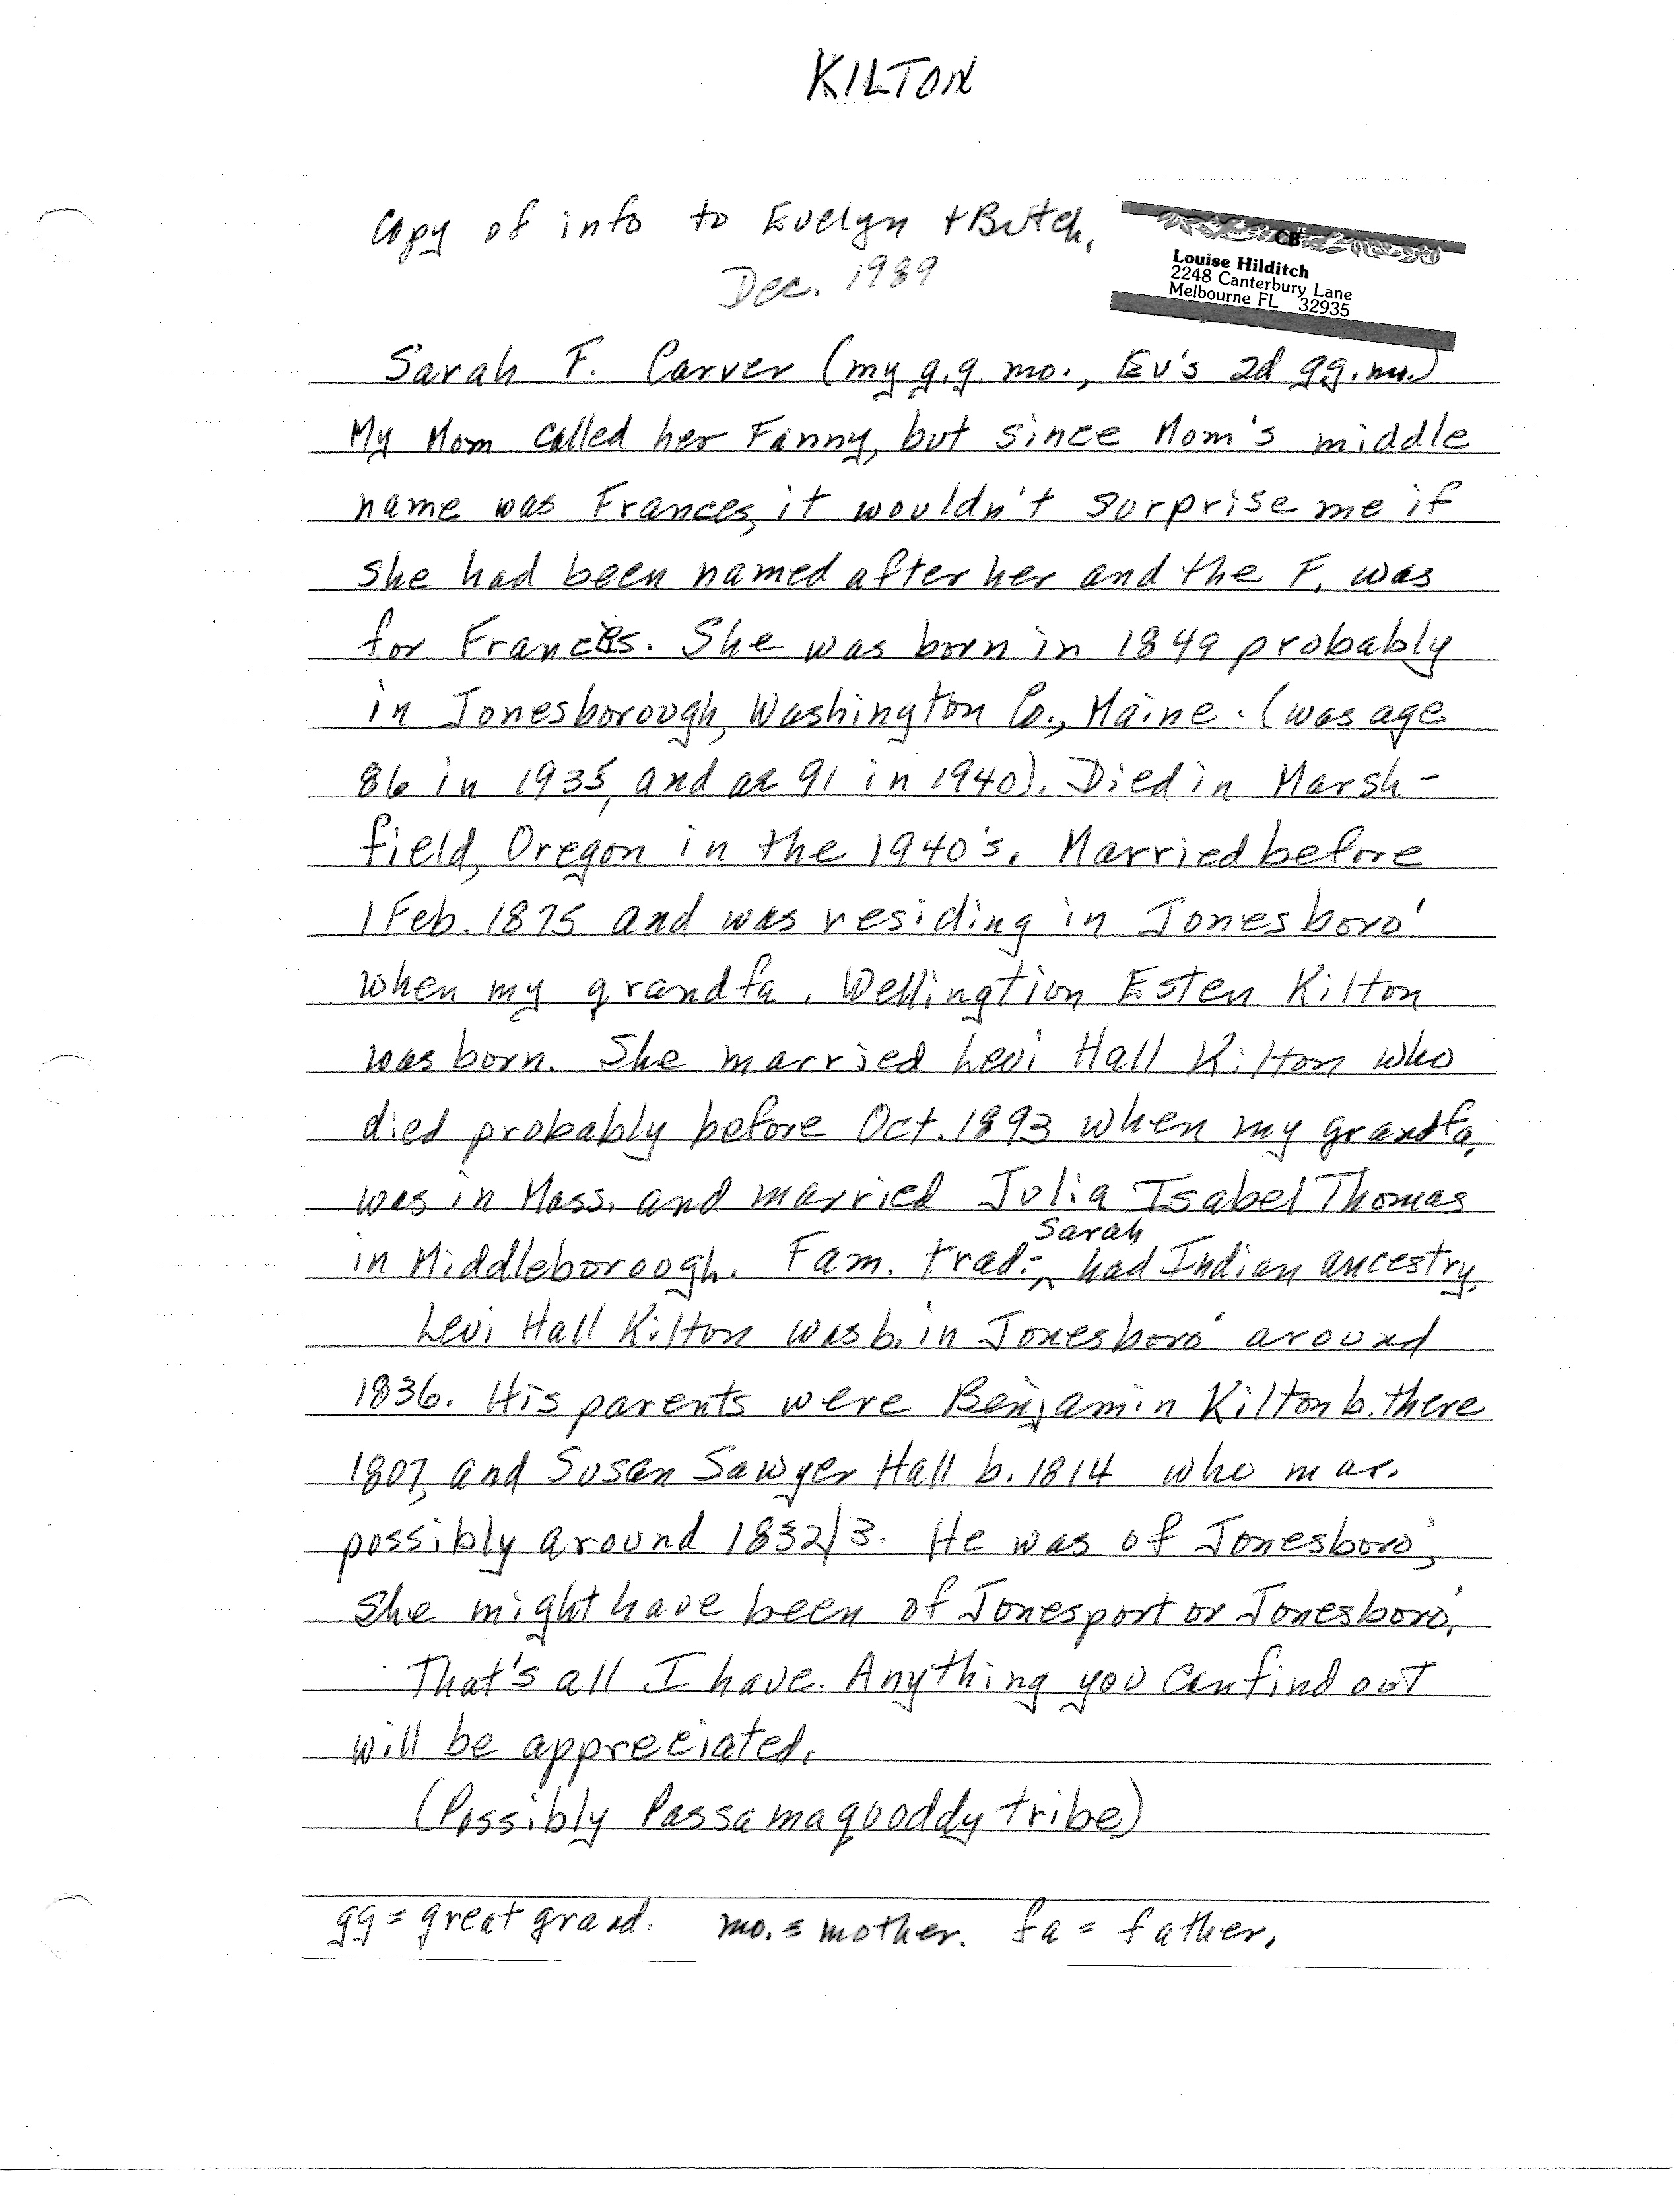 KILTON
Copy of info to Evelyn + Butch,
Dec. 1989
CB
Louise Hilditch
2248 Canterbury Lane
Melbourne FL 32935
Sarah F. Carver (my g.g. mo., Ev's 2d gg. mo.)
My Mom called her Fanny, but since Mom's middle
name was Frances, it wouldn't surprise me if
she had been named after her and the F. was
for Frances. She was born in 1849 probably
in Jonesborough, Washington Co., Maine. (was age
86 in 1935, and 91 in 1940). Died in Marsh-
field, Oregon in the 1940's. Married before
1 Feb. 1875 and was residing in Jonesboro'
when my grandfa. Wellingtion Esten Kilton
was born. She married Levi Hall Kilton who
died probably before Oct. 1893 when my grandfa.
was in Mass. and married Julia Isabel Thomas
in Middleborough. Fam. trad: Sarah had Indian ancestry.
Levi Hall Kilton was b. in Jonesboro' around
1836. His parents were Benjamin Kilton b. there
1807, and Susan Sawyer Hall b. 1814 who mar.
possibly around 1832/3. He was of Jonesboro';
she might have been of Jonesport or Jonesboro'.
That's all I have. Anything you can find out
will be appreciated.
(Possibly Passamaquoddy tribe)
gg = great grand. mo. = mother. fa = father.